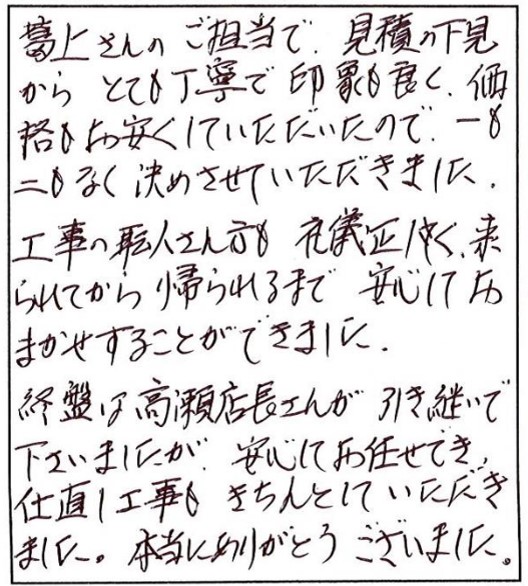 葛上さんの ご担当で、見積の下見
から とても丁寧で 印象も良く、価
格もお安くしていただいたので、一も
二もなく 決めさせていただきました。
工事の職人さん方も 礼儀正しく、来
られてから 帰られるまで 安心してお
まかせすることができました。
終盤は高瀬店長さんが 引き継いで
下さいましたが、安心してお任せでき、
仕直し工事も きちんとして いただき
ました。本当にありがとう ございました。